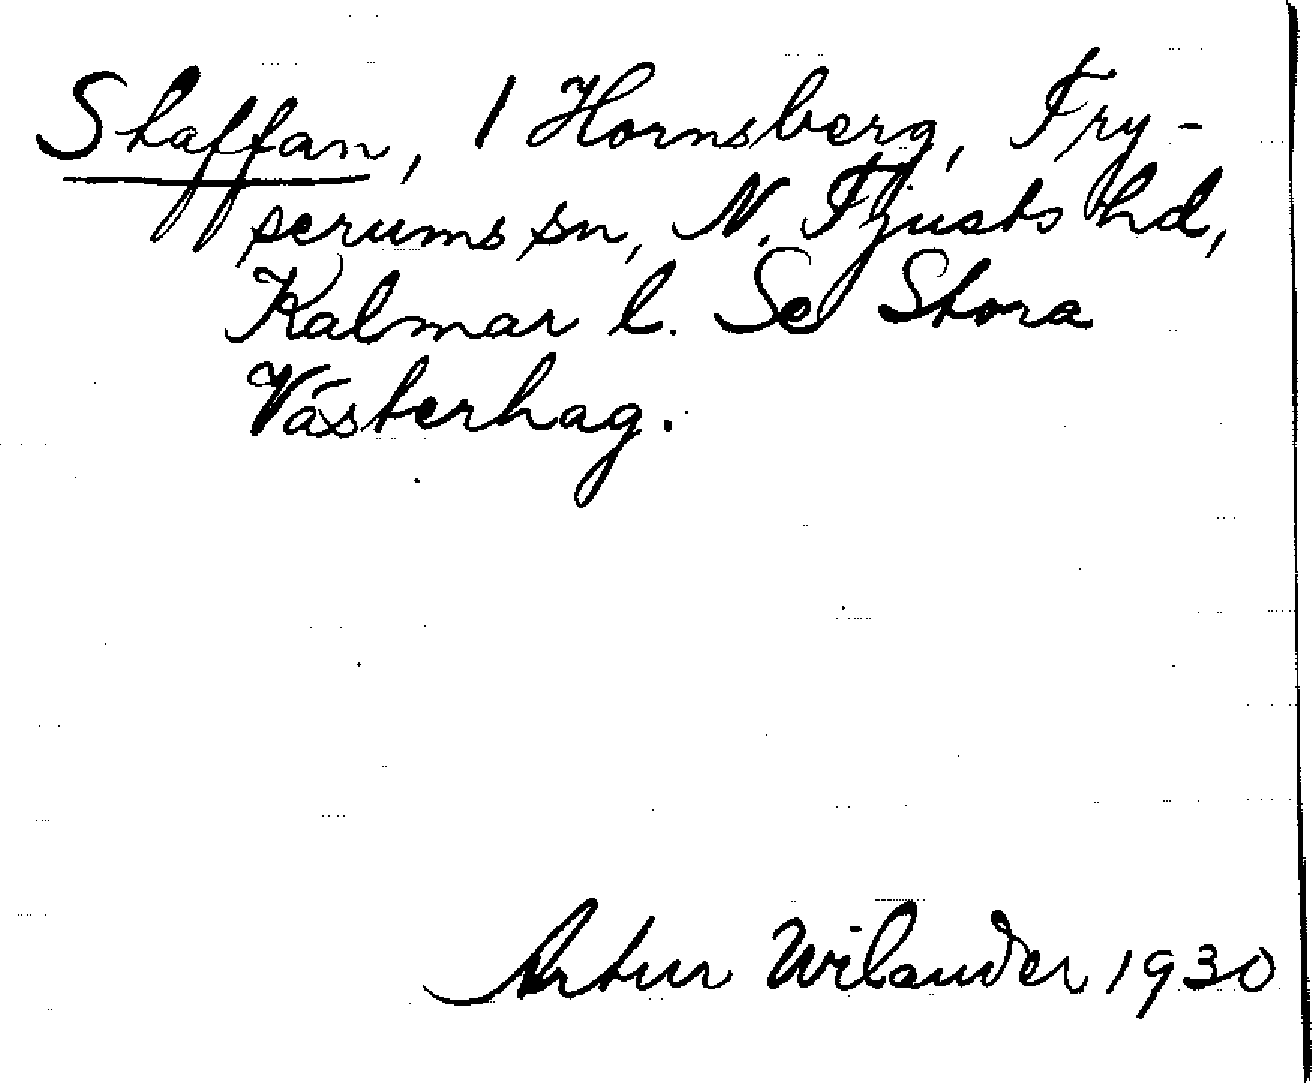 Skaffan, 1 Hornsberg, Try-
serums sn, N. Tjusts hd,
Kalmar l. Se Stora
Västerhag.
Artur Wilander 1930